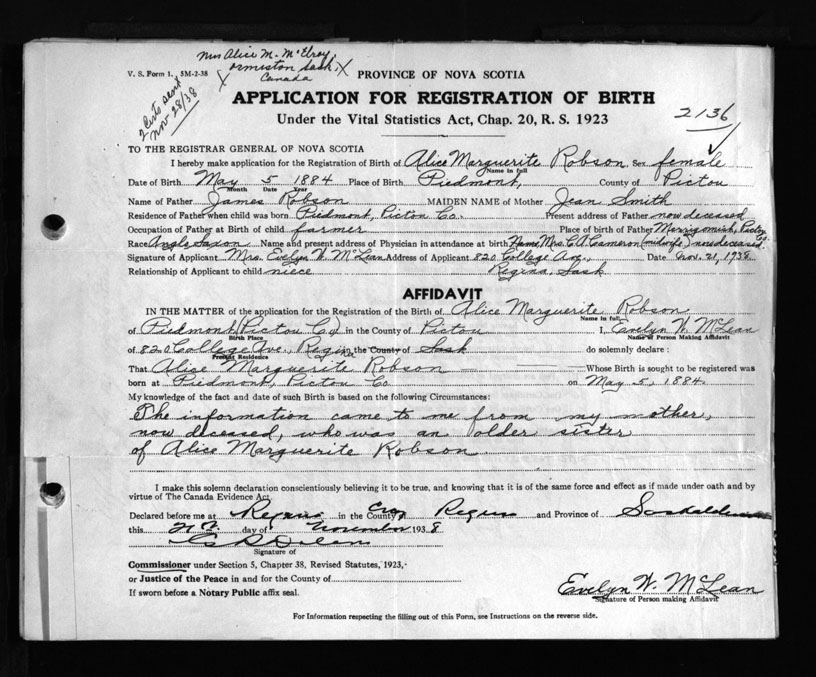 Mrs Alice M. McElroy,
Ormiston Sask,
Canada
V. S. Form 1. 5M-2-38
2 Certs sent
Nov 28/38
PROVINCE OF NOVA SCOTIA
APPLICATION FOR REGISTRATION OF BIRTH
2136
Under the Vital Statistics Act, Chap. 20, R. S. 1923
TO THE REGISTRAR GENERAL OF NOVA SCOTIA
I hereby make application for the Registration of Birth of Alice Marguerite Robson Sex female
Name in full
Date of Birth May 5 1884 Place of Birth Piedmont, County of Pictou
Month Date Year
Name of Father James Robson MAIDEN NAME of Mother Jean Smith
Residence of Father when child was born Piedmont, Pictou Co. Present address of Father now deceased
Occupation of Father at Birth of child farmer Place of birth of Father Merrigomish, Pictou Co.
Race Anglo Saxon Name and present address of Physician in attendance at birth Name Mrs. C. A. Cameron (midwife) now deceased.
Signature of Applicant Mrs. Evelyn W. McLean Address of Applicant 820 College Ave., Date Nov. 21, 1938
Relationship of Applicant to child niece Regina, Sask
AFFIDAVIT
IN THE MATTER of the application for the Registration of the Birth of Alice Marguerite Robson
Name in full
of Piedmont, Pictou Co. in the County of Pictou I, Evelyn W. McLean
Birth Place Name of Person Making Affidavit
of 820 College Ave., Regina in the County of Sask do solemnly declare :
Present Residence
That Alice Marguerite Robson Whose Birth is sought to be registered was
born at Piedmont, Pictou Co on May 5, 1884.
My knowledge of the fact and date of such Birth is based on the following Circumstances:
The information came to me from my mother,
now deceased, who was an older sister
of Alice Marguerite Robson.
I make this solemn declaration conscientiously believing it to be true, and knowing that it is of the same force and effect as if made under oath and by
virtue of The Canada Evidence Act.
Declared before me at Regina in the County of City Regina and Province of Saskatchewan
this day of November 1938
Signature of
Commissioner under Section 5, Chapter 38, Revised Statutes, 1923,
or Justice of the Peace in and for the County of
If sworn before a Notary Public affix seal.
Evelyn W. McLean
Signature of Person making Affidavit
For Information respecting the filling out of this Form, see Instructions on the reverse side.